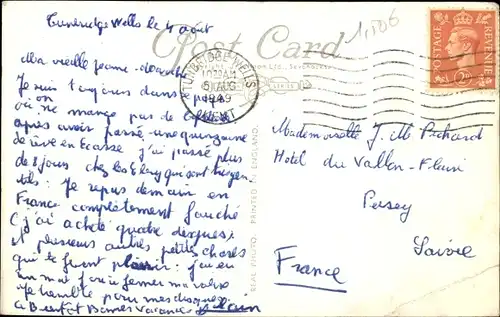 Tunbridge Wells le 4 août
Ma vieille Jeanne-
Je suis toujours dans
on
où ne mange pas de
après avoir passé une quinzaine
de rêve en Ecosse j'ai passé plus
de 8 jours chez les qui sont
Je repars demain en
France complètement fauché
j'ai acheté quatre disques
et plusieurs autres petites choses
qui te feront plaisir: j'ai eu
un mal fou à fermer ma valise
Je tremble pour mes disques
A Bientôt Bonnes Vacances Alain
Post Card
1,106
TUNBRIDGE WELLS
10 AM
5 AUG
1949
KENT
POSTAGE REVENUE
2D
REAL PHOTO PRINTED IN ENGLAND.
Mademoiselle J. M. Pichard
Hotel du Vallon-Fleuri
Peisey
Savoie
France